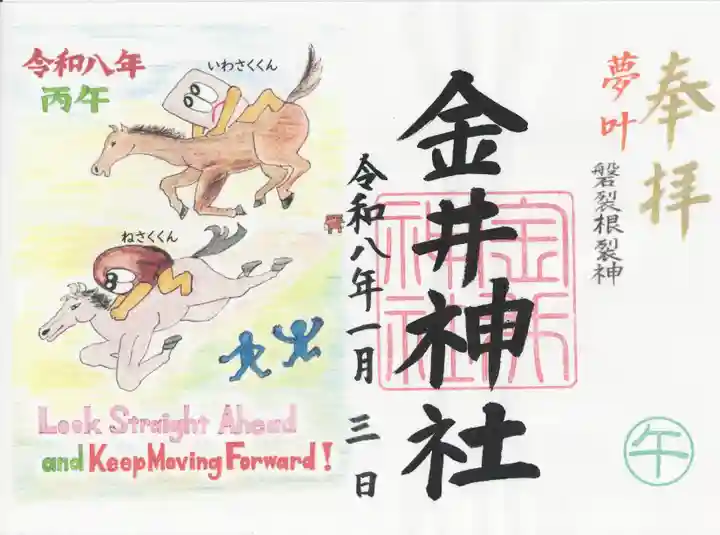 奉拝
夢叶
磐裂根裂神
金井神社
金井
神社
令和八年一月 三 日
午
令和八年
丙午
いわさくくん
ねさくくん
Look Straight Ahead
and Keep Moving Forward!